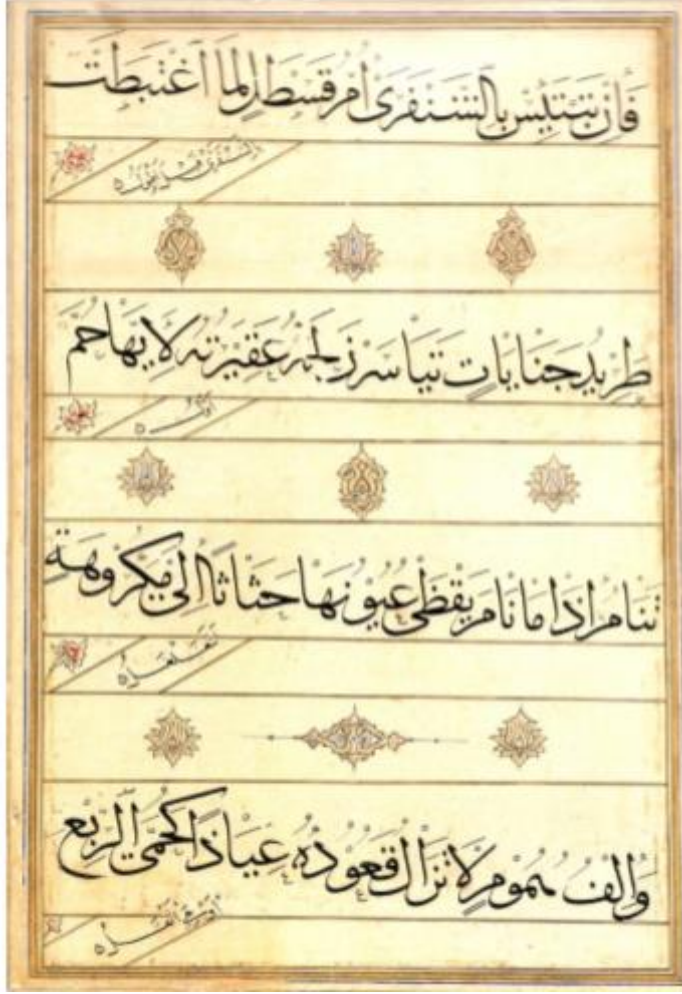 فَإِن تَبْتَئِسْ بِالشَّنْفَرَى أُمُّ قَسْطَلٍ لَمَا اغْتَبَطَتْ
بالشنفرى قبل اطول
طَرِيدُ جَنَايَاتٍ تَيَاسَرْنَ لَحْمَهُ عَقِيرَتُهُ لِأَيِّهَا حُمَّ
اول
تَنَامُ إِذَا مَا نَامَ يَقْظَى عُيُونُهَا حَثَاثًا إِلَى مَكْرُوهَةٍ
تتغلغل
وَإِلْفُ هُمُومٍ لَا تَزَالُ تَعُودُهُ عِيَادًا كَحُمَّى الرِّبْعِ
او هي اثقل